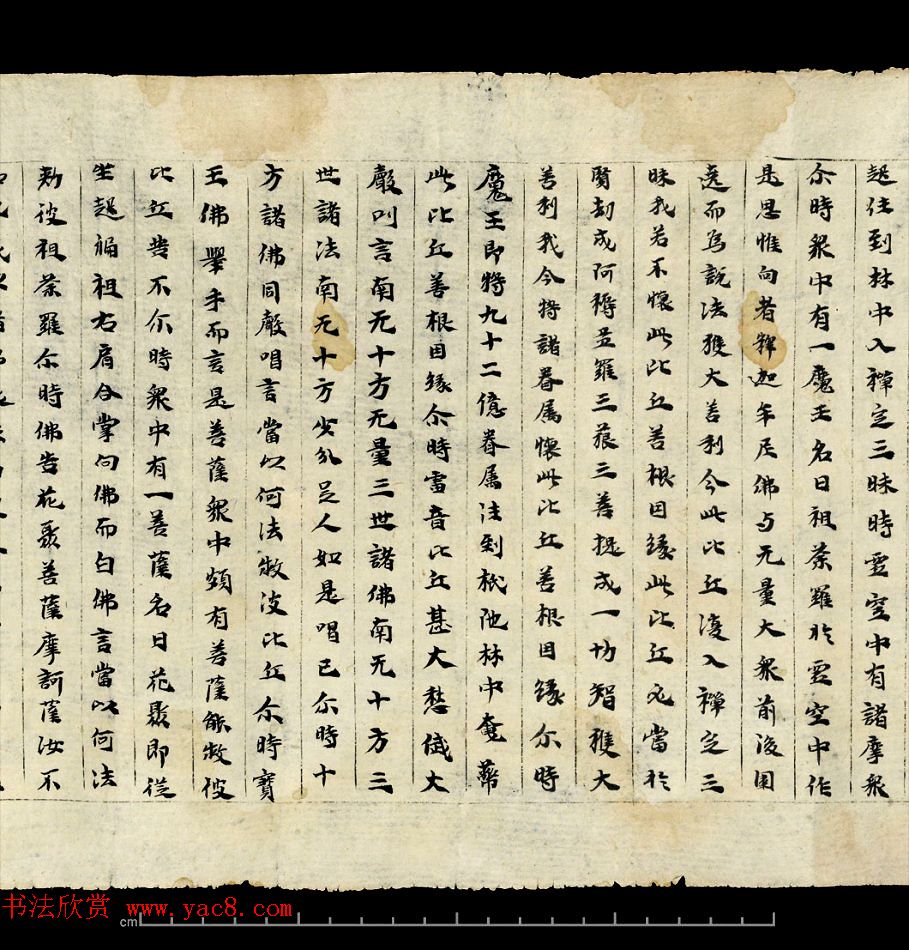 起住到林中入禪定三昧時虛空中有諸摩衆
尒時衆中有一魔王名曰祖荼羅於虛空中作
是思惟向者釋迦牟尼佛与无量大衆前後圍
遶而爲說法獲大善利今此比丘復入禪定三
昧我若不懷此比丘善根因緣此比丘必當於
賢劫成阿耨三羅三藐三善提成一切智獲大
善利我今將諸眷属懷此比丘善根因緣尒時
魔王即將九十二億眷属往到祇陁林中奄蔽
此比丘善根因緣尒時雷音比丘甚大愁㥘大
聲叫言南无十方无量三世諸佛南无十方三
世諸法南无十方少分足人如是唱已尒時十
方諸佛同聲唱言當以何法救汝比丘尒時寳
王佛舉手而言是善薩衆中頗有善薩能救彼
比丘苦不尒時衆中有一善薩名曰花聚即從
坐起徧袒右肩合掌向佛而白佛言當以何法
勑彼祖荼羅尒時佛告花聚善薩摩訶薩汝不
书法欣赏 www.yac8.com
cm